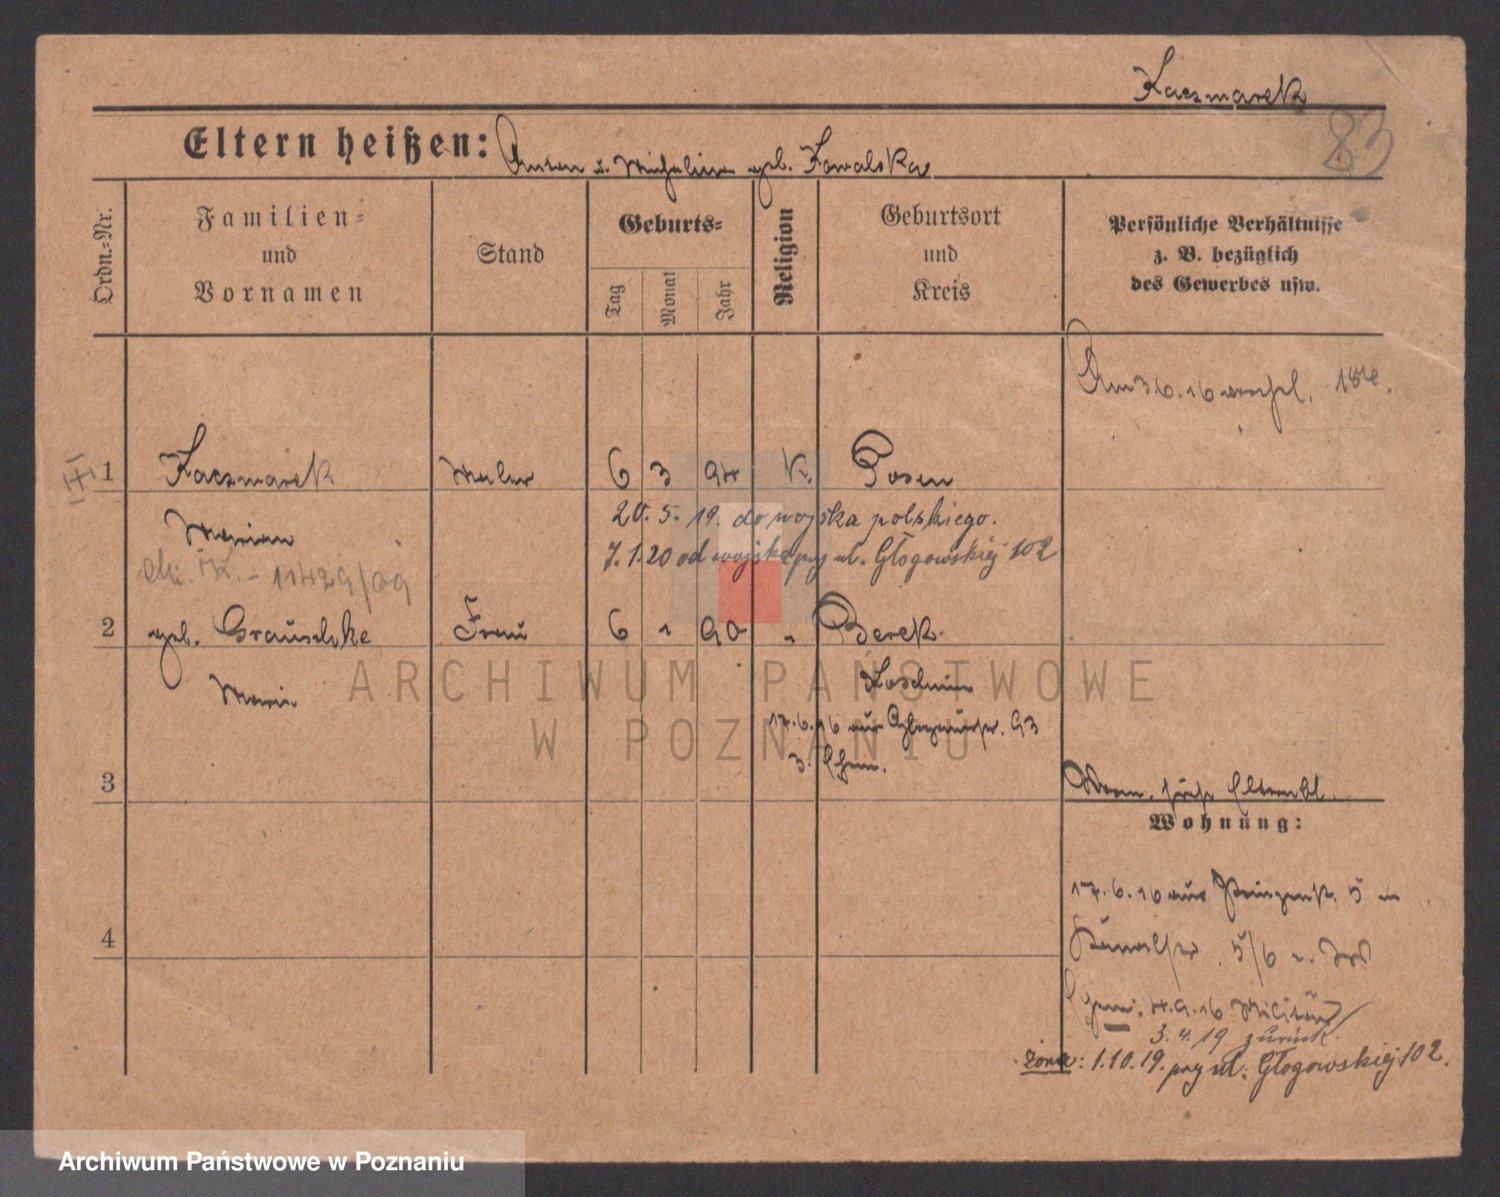 Kaczmarek
83
Eltern heißen: Anton u. Michalina geb. Kowalska
Ordn.=Nr.
Familien=
und
Vornamen
Stand
Geburts=
Tag
Monat
Jahr
Religion
Geburtsort
und
Kreis
Persönliche Verhältnisse
z. B. bezüglich
des Gewerbes usw.
1 Kaczmarek Maler 6 3 94 K. Posen
20. 5. 19. do wojska polskiego.
Marian
7.1.20 od wojska przy ul. Głogowskiej 102
11429/09
2 geb. Grauschke Frau 6 1 90 " Borek
Maria Koschmin
17.6.16 aus 93
3
Wohnung:
17.6.16 aus Prinzenstr. 5 in
5/6
4
4.9.16 Militär
3.4.19 zurück
żona: 1.10.19. przy ul. Głogowskiej 102.
ARCHIWUM PAŃSTWOWE
W POZNANIU
Archiwum Państwowe w Poznaniu